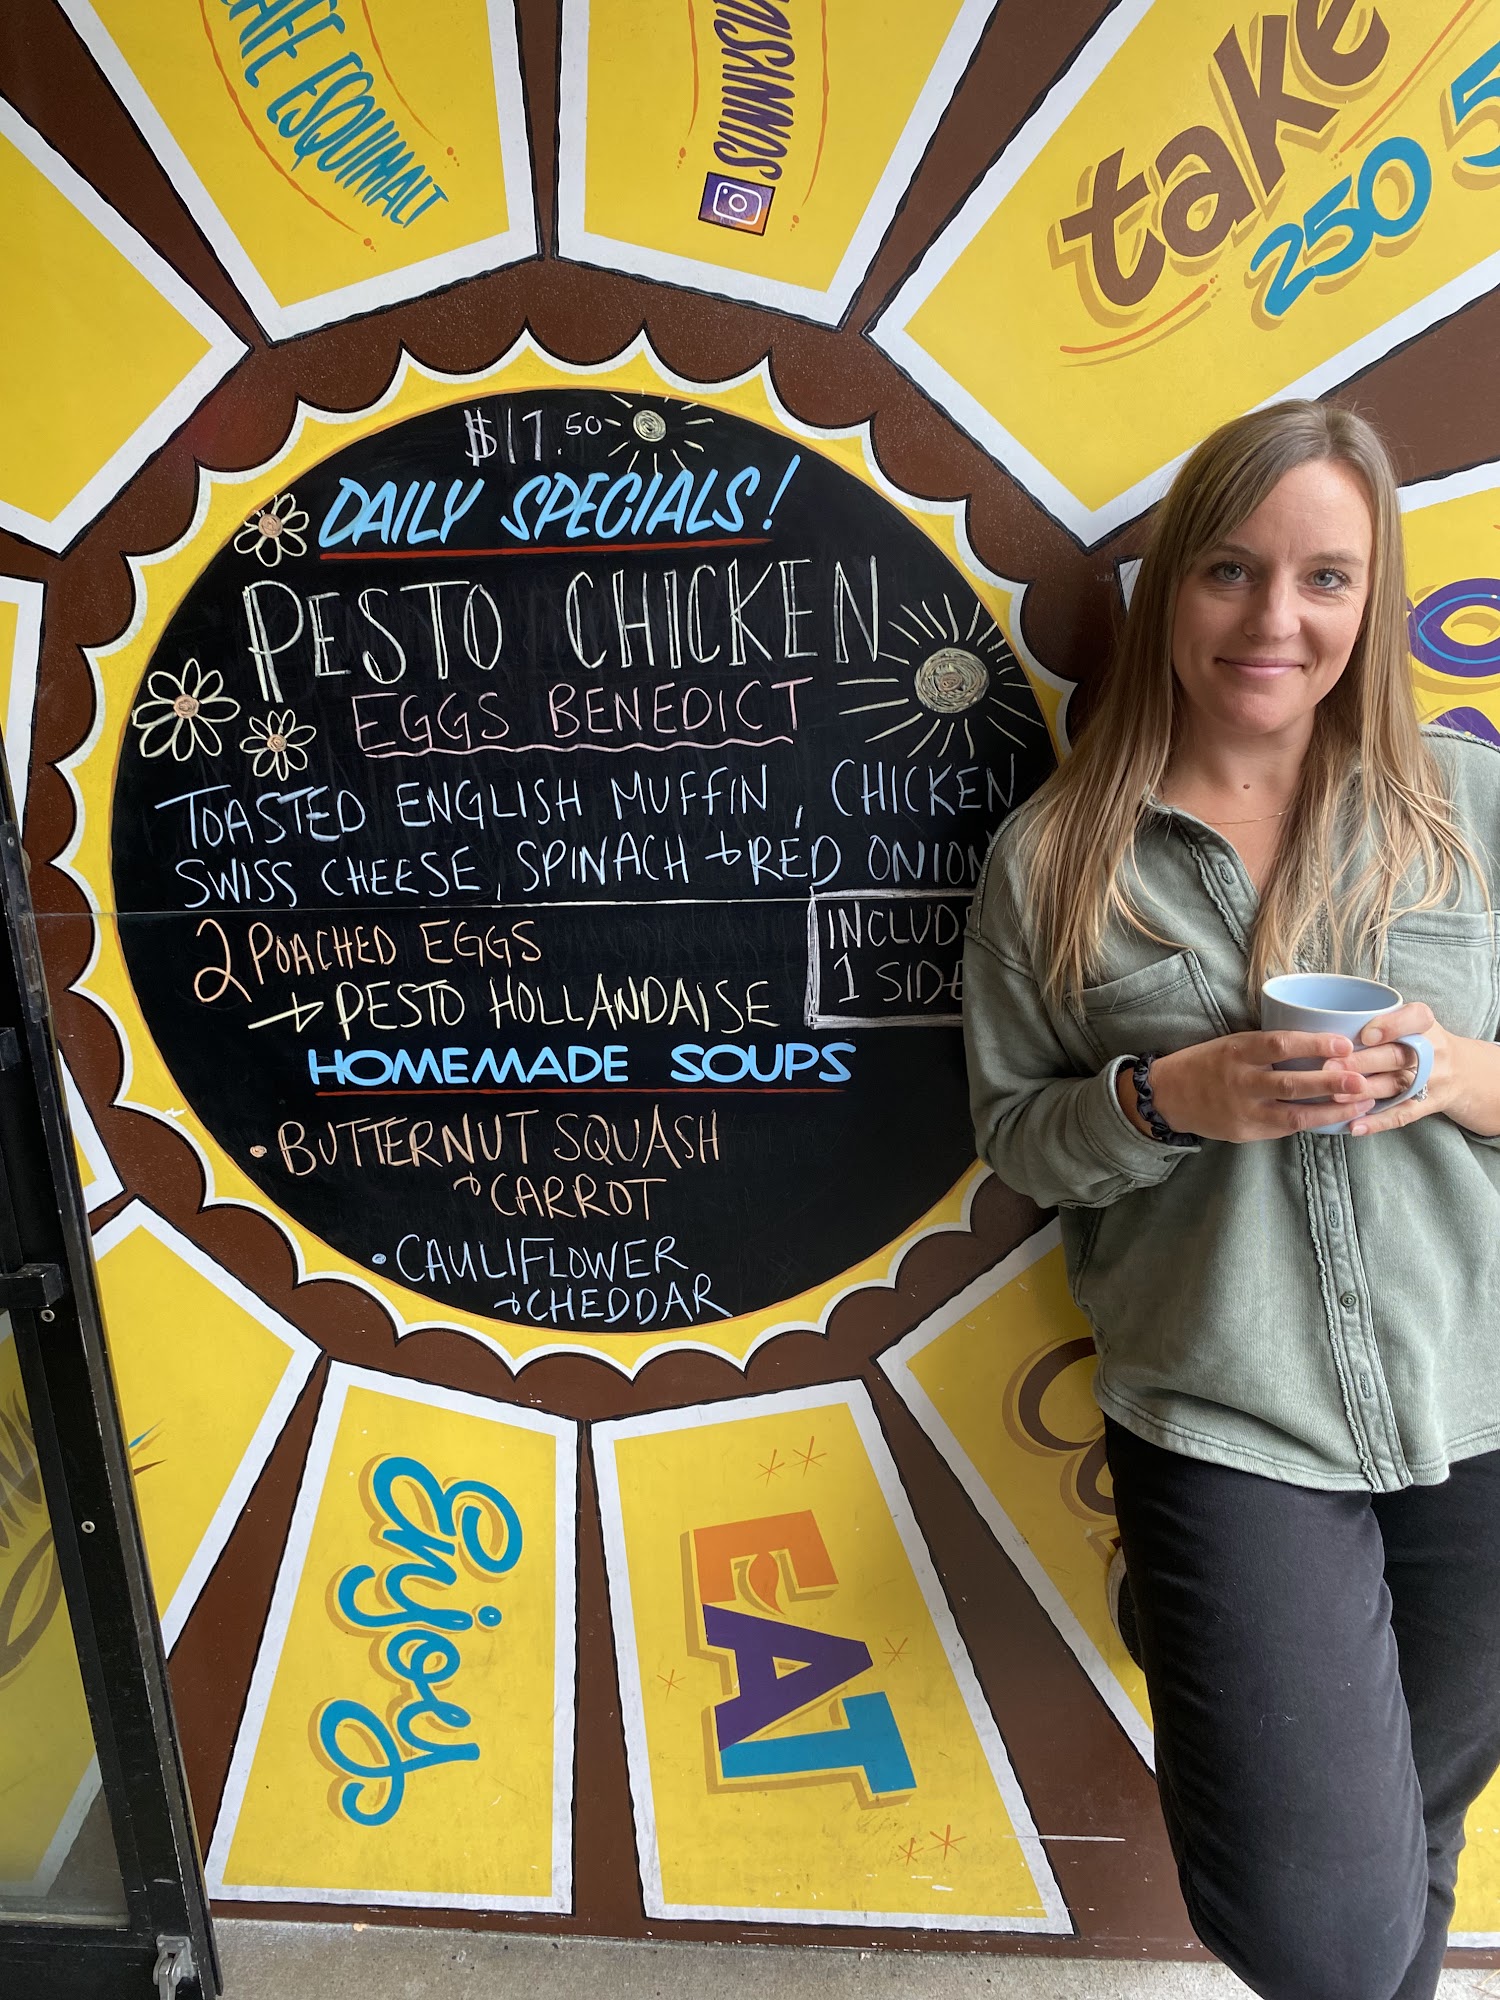 CAFE ESQUIMALT
take
250 5
$17.50
DAILY SPECIALS!
PESTO CHICKEN
EGGS BENEDICT
TOASTED ENGLISH MUFFIN, CHICKEN
SWISS CHEESE, SPINACH + RED ONION
2 POACHED EGGS
+ PESTO HOLLANDAISE
INCLUD
1 SIDE
HOMEMADE SOUPS
• BUTTERNUT SQUASH
+ CARROT
• CAULIFLOWER
+ CHEDDAR
Enjoy
EAT